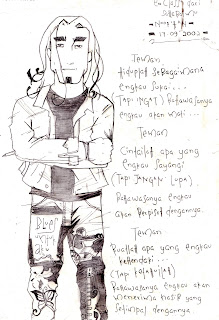 Teman
Hiduplah sebagaimana
engkau suka...
(Tapi ingat) Bahwasanya
engkau akan mati...
Teman
Cintailah apa yang
engkau sayangi
(Tapi JANGAN Lupa)
Bahwasanya engkau
akan berpisah dengannya.
Teman
Buatlah apa yang engkau
kehendaki...
(Tapi
Bahwasanya engkau akan
menerima hasil yang
setimpal dengannya